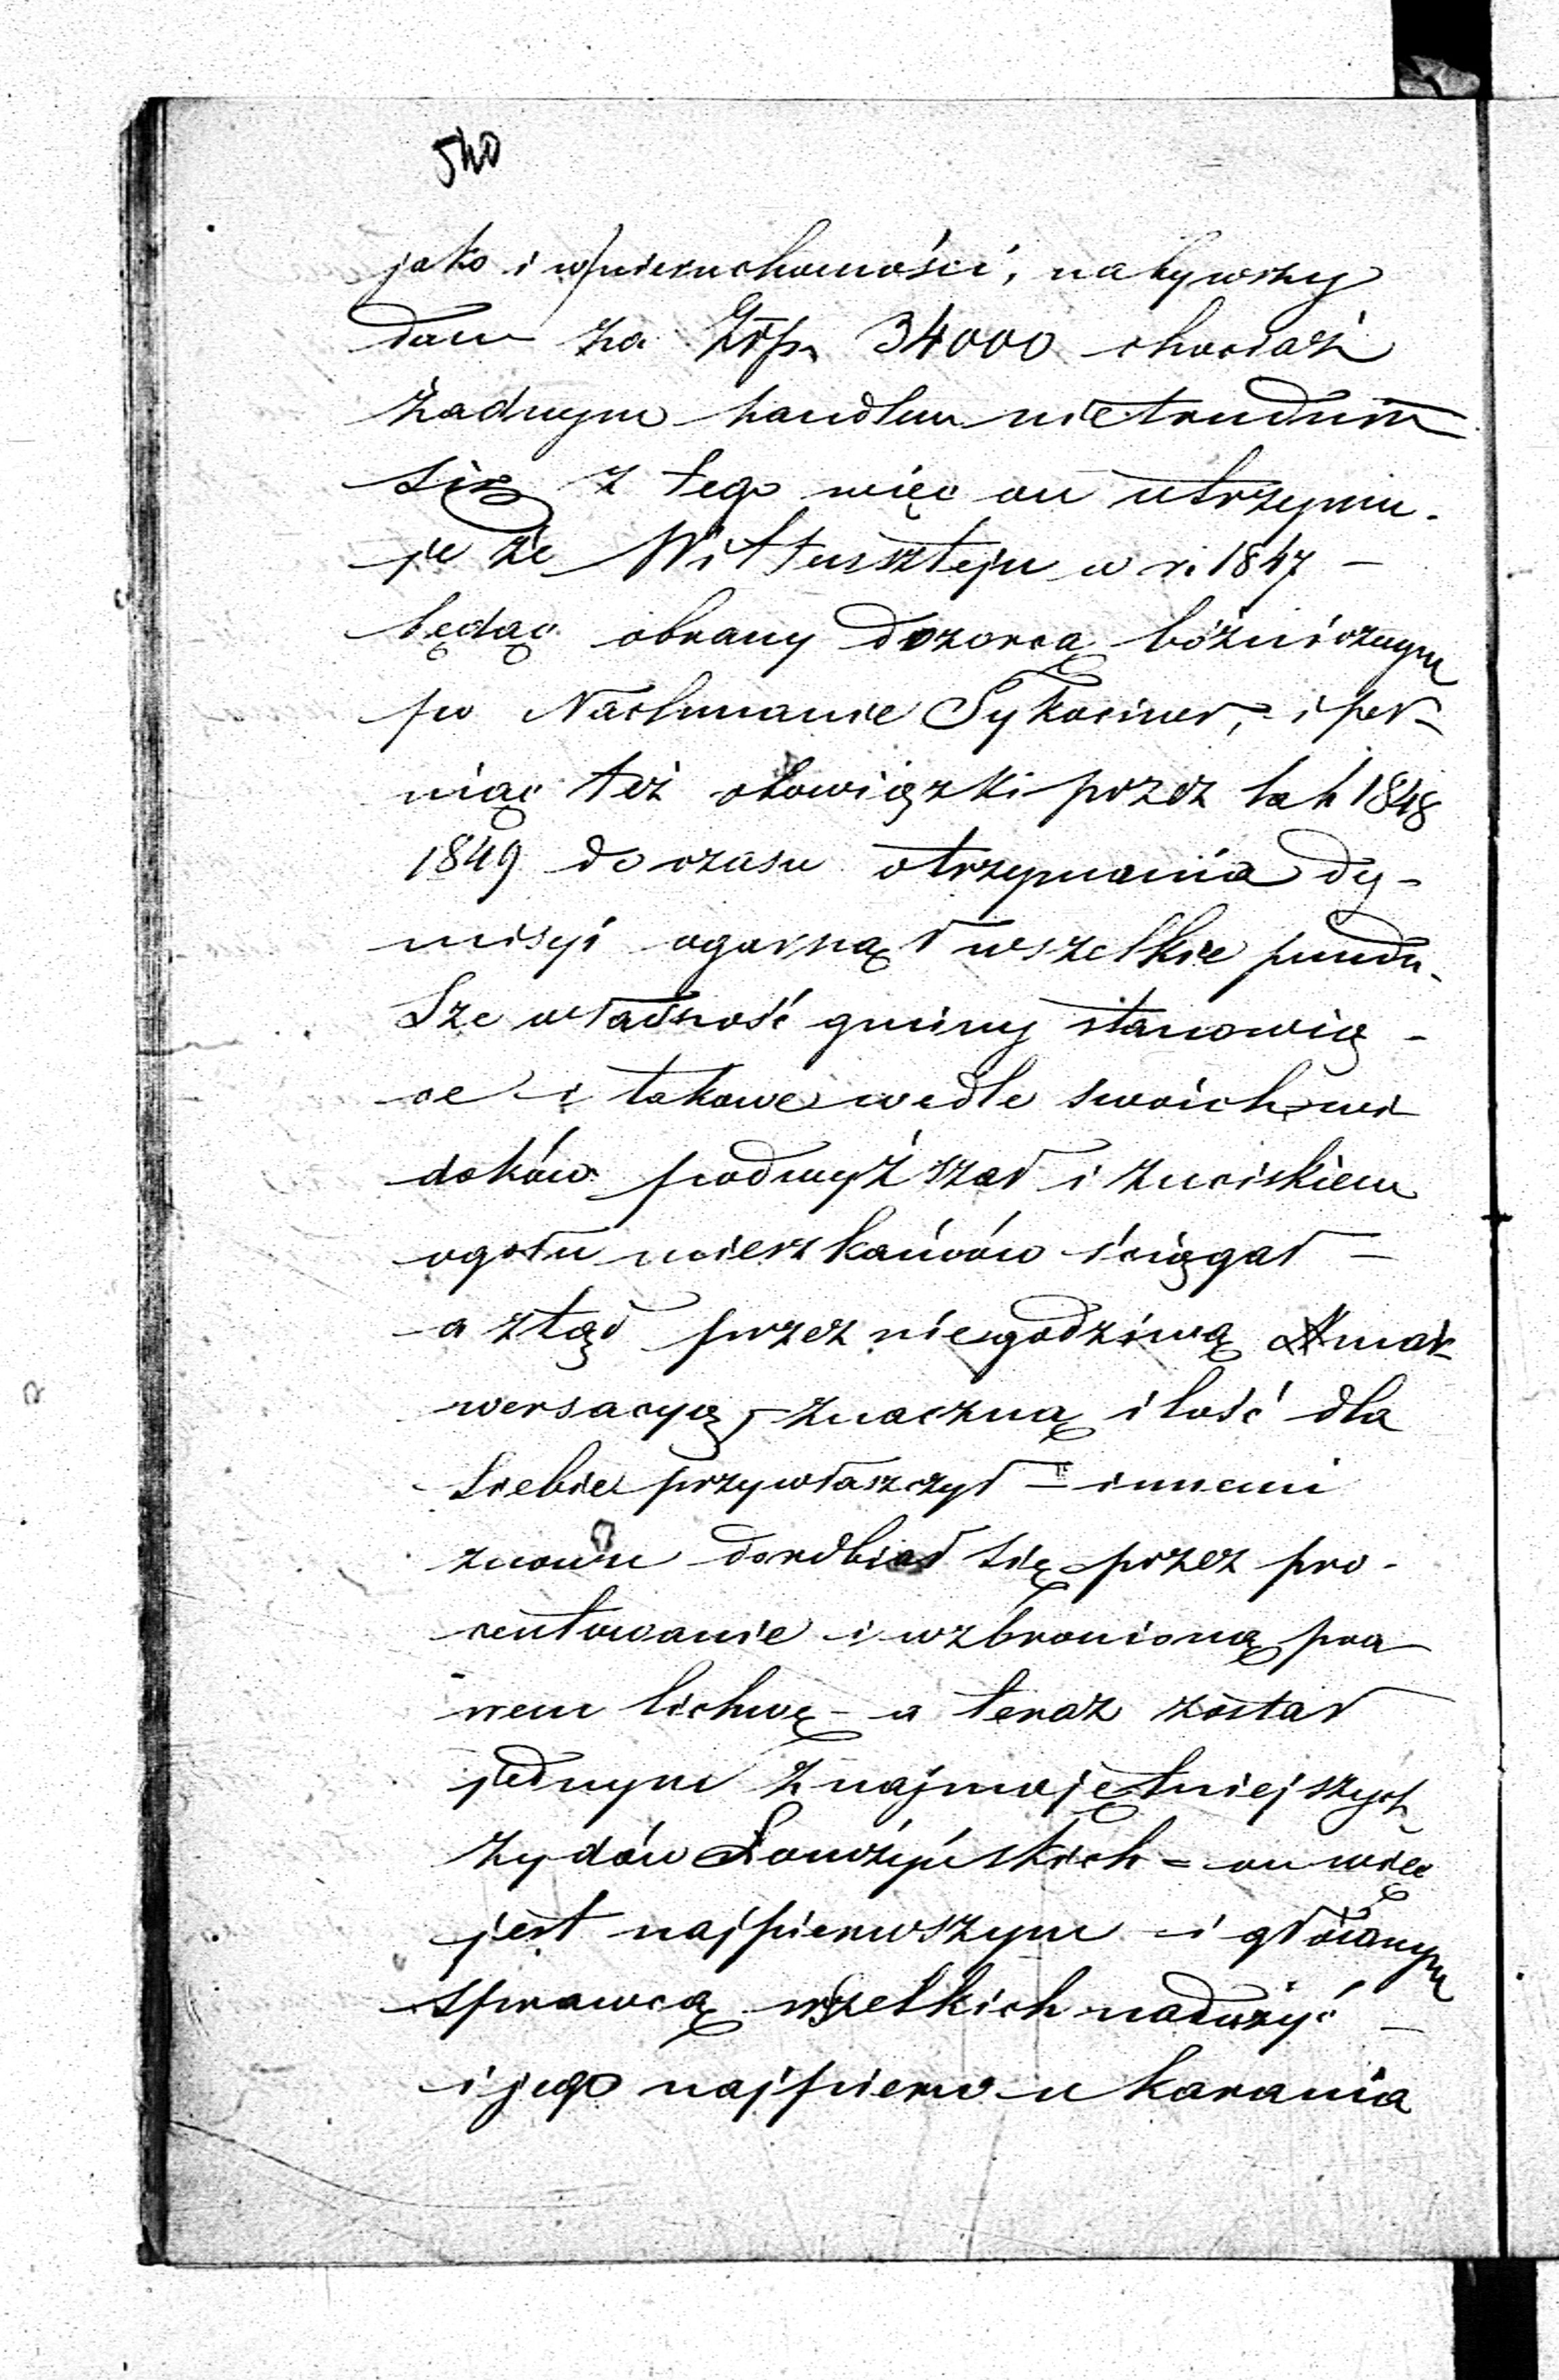 540
jako i w nieruchomości, nabywszy
dom za Złp. 34000 chociaż
żadnym handlem nietrudnił
się z tego więc on utrzymu-
je że Wittensztejn w r. 1847 –
będąc obrany dozorcą bóżnicznym
po Nachmanie Tykociner, i peł-
niąc też obowiązki przez lat 1848
1849 do czasu otrzymania dy-
misyi ogarnął wszelkie fundu-
sze własność gminy stanowią-
ce i takowe wedle swoich wi
doków podwyższał i z uciskiem
ogołu mieszkańców ściągał –
a ztąd przez niegodziwą mal-
wersacyą, znaczną ilość dla
siebie przywłaszczył – innemi
znowu dorobiał się przez pro-
centowanie i wzbronioną pra
wem lichwę – a teraz został
jednym z najmajętniejszych
żydów Łomżyńskich – on więc
jest najpierwszym i głównym
sprawcą wszelkich nadużyć –
i jego najpierw ukarania